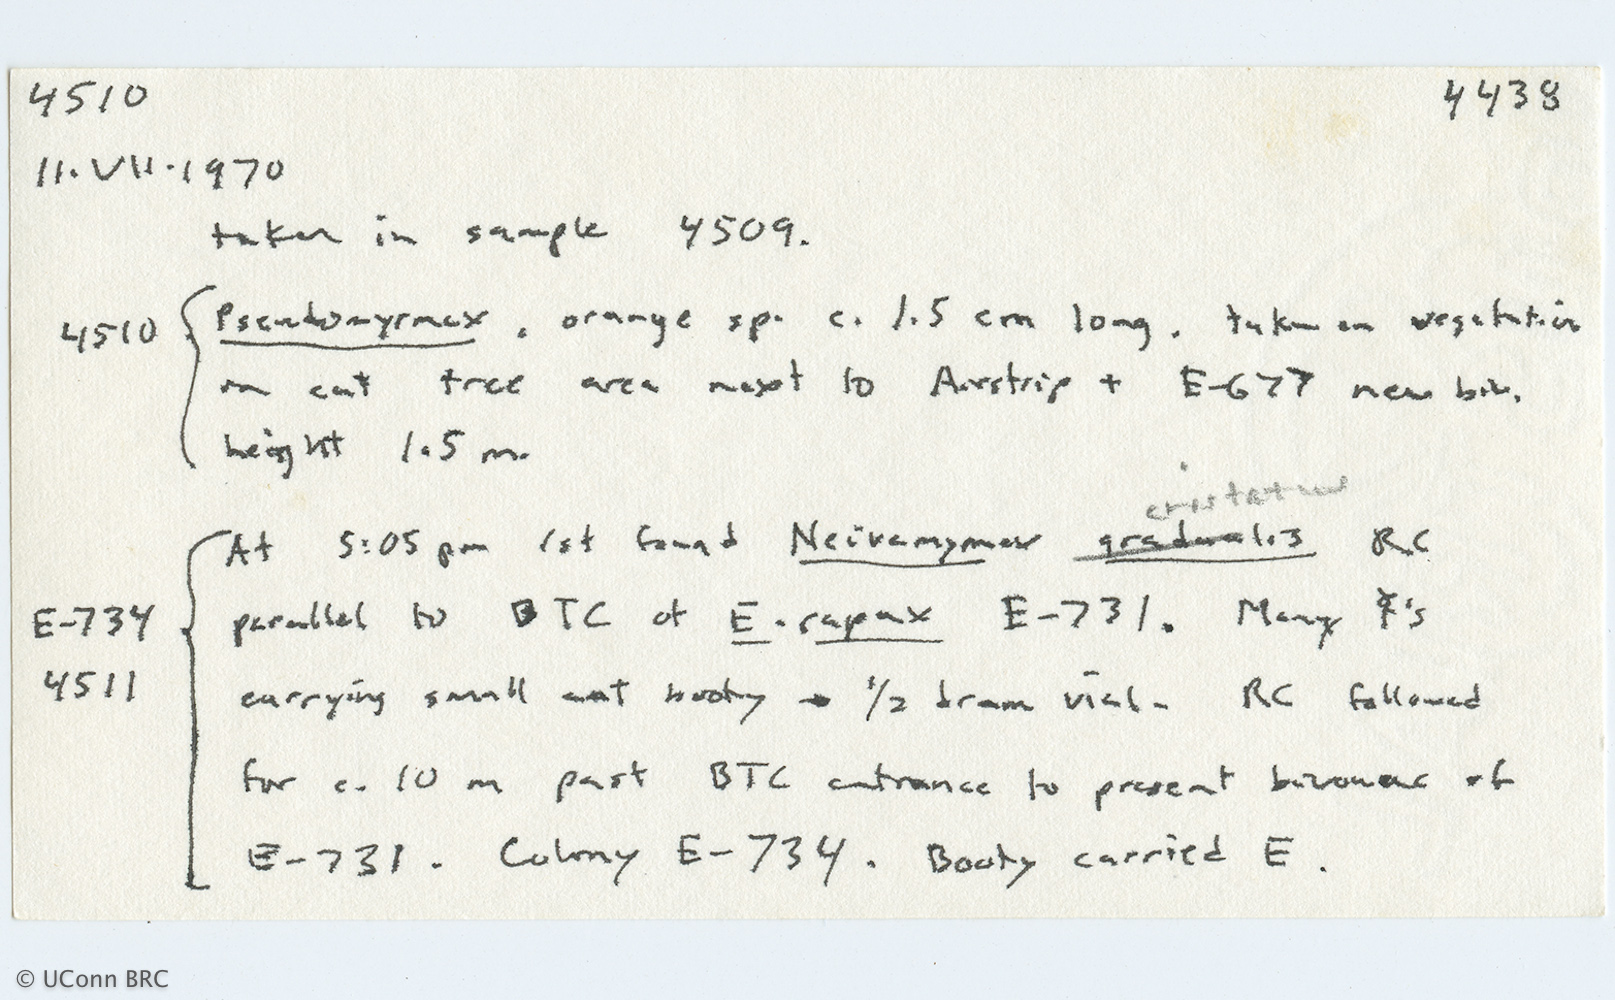 4510 4438
11.VII.1970
taken in sample 4509.
4510 Pseudomyrmex, orange sp. c. 1.5 cm long. taken on vegetation
in cut tree area next to Airstrip + E-677 new biv.
height 1.5 m.
cristatus
At 5:05 pm 1st found Neivamyrmex gradualis RC
E-734 parallel to BTC of E. rapax E-731. Many ☿'s
4511 carrying small ant booty → 1/2 dram vial. RC followed
for c. 10 m past BTC entrance to present bivouac of
E-731. Colony E-734. Booty carried E.
© UConn BRC